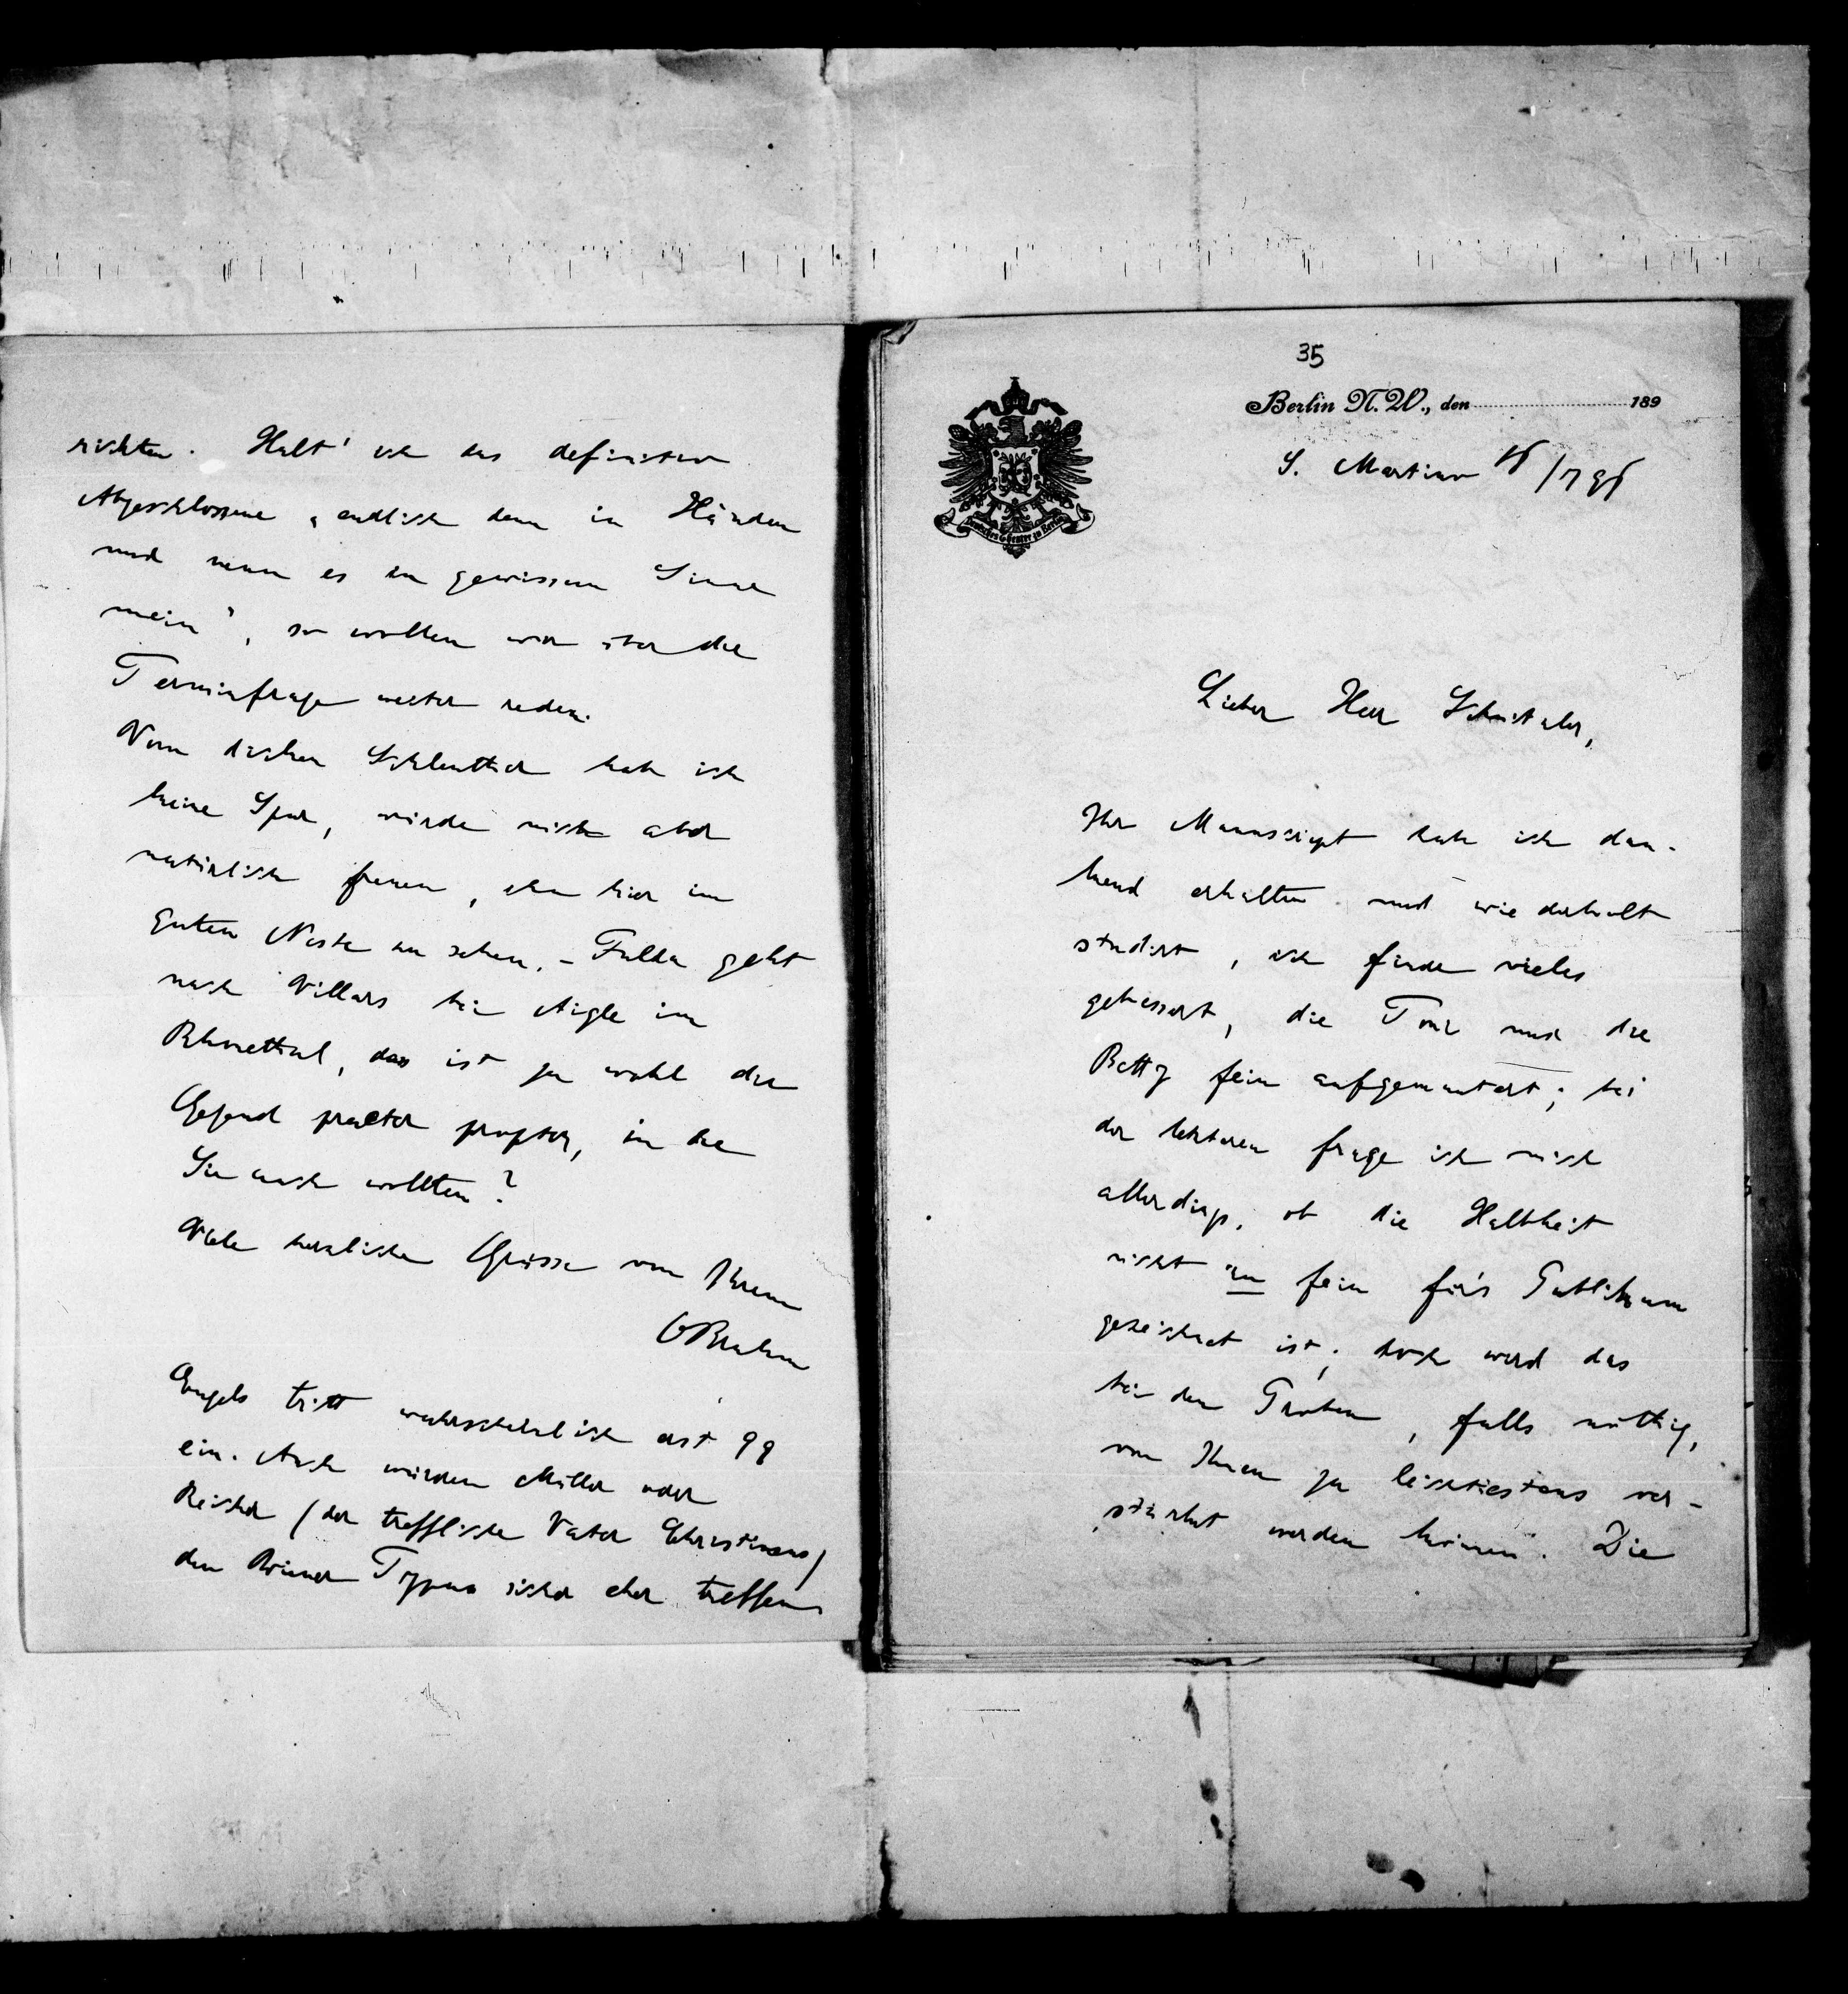 richten. Halt' ich das definitiv
Abgeschlossene „endlich denn in Händen
und nenn es in gewissem Sinne
mein“, so wollen wir über die
Terminfrage weiter reden.
Vom dicken Schlenther hab ich
keine Spur, würde mich aber
natürlich freuen, ihn hier im
guten Neste zu sehen. – Fulda geht
nach Villars bei Aigle im
Rhonethal, das ist ja wohl die
Gegend praeter propter, in die
Sie auch wollten?
Viele herzliche Grüsse von Ihrem
OBrahm
Engels tritt wahrscheinlich erst 99
ein. Auch würden Müller oder
Reicher (der treffliche Vater Christinens)
den Wiener Typus sicher eher treffen
35
Berlin N. W., den 189
Deutsches Theater zu Berlin
S. Martino
Lieber Herr Schnitzler,
Ihr Manuscript habe ich dan-
kend erhalten und wiederholt
studirt, ich finde vieles
gebessert, die Toni und die
Betty fein aufgemuntert; bei
der letzteren frage ich mich
allerdings, ob die Halbheit
nicht zu fein für's Publikum
gezeichnet ist; doch wird das
bei den Proben, falls nöthig,
von Ihnen ja leichtestens ver-
stärkt werden können. Die